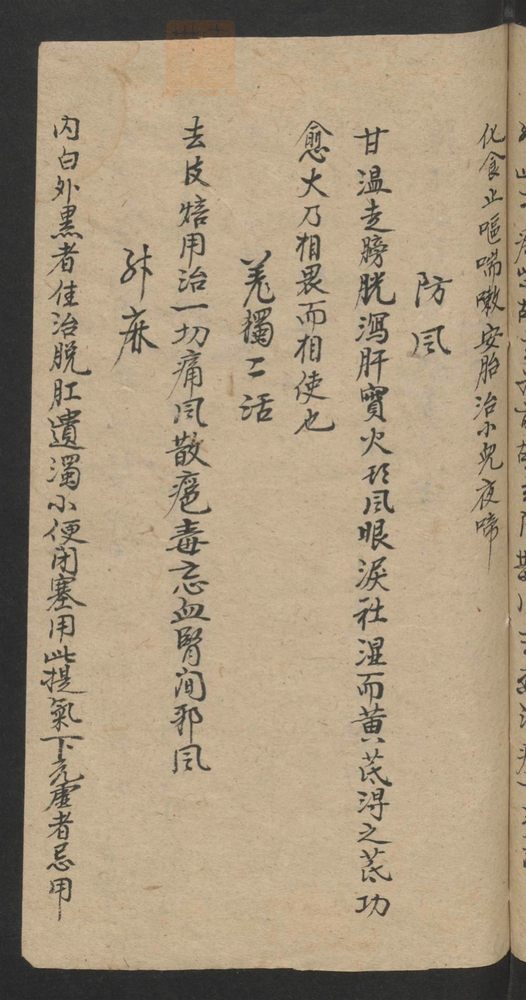 化食止嘔喘嗽安胎治小兒夜啼
防風
甘温走膀胱瀉肝實火頭風眼淚祛湿而黄芪得之芪功
愈大乃相畏而相使也
羗獨二活
去皮焙用治一切痛風散瘡毒忘血腎間邪風
升麻
内白外黒者佳治脱肛遺濁小便闭塞用此提氣下元虚者忌用